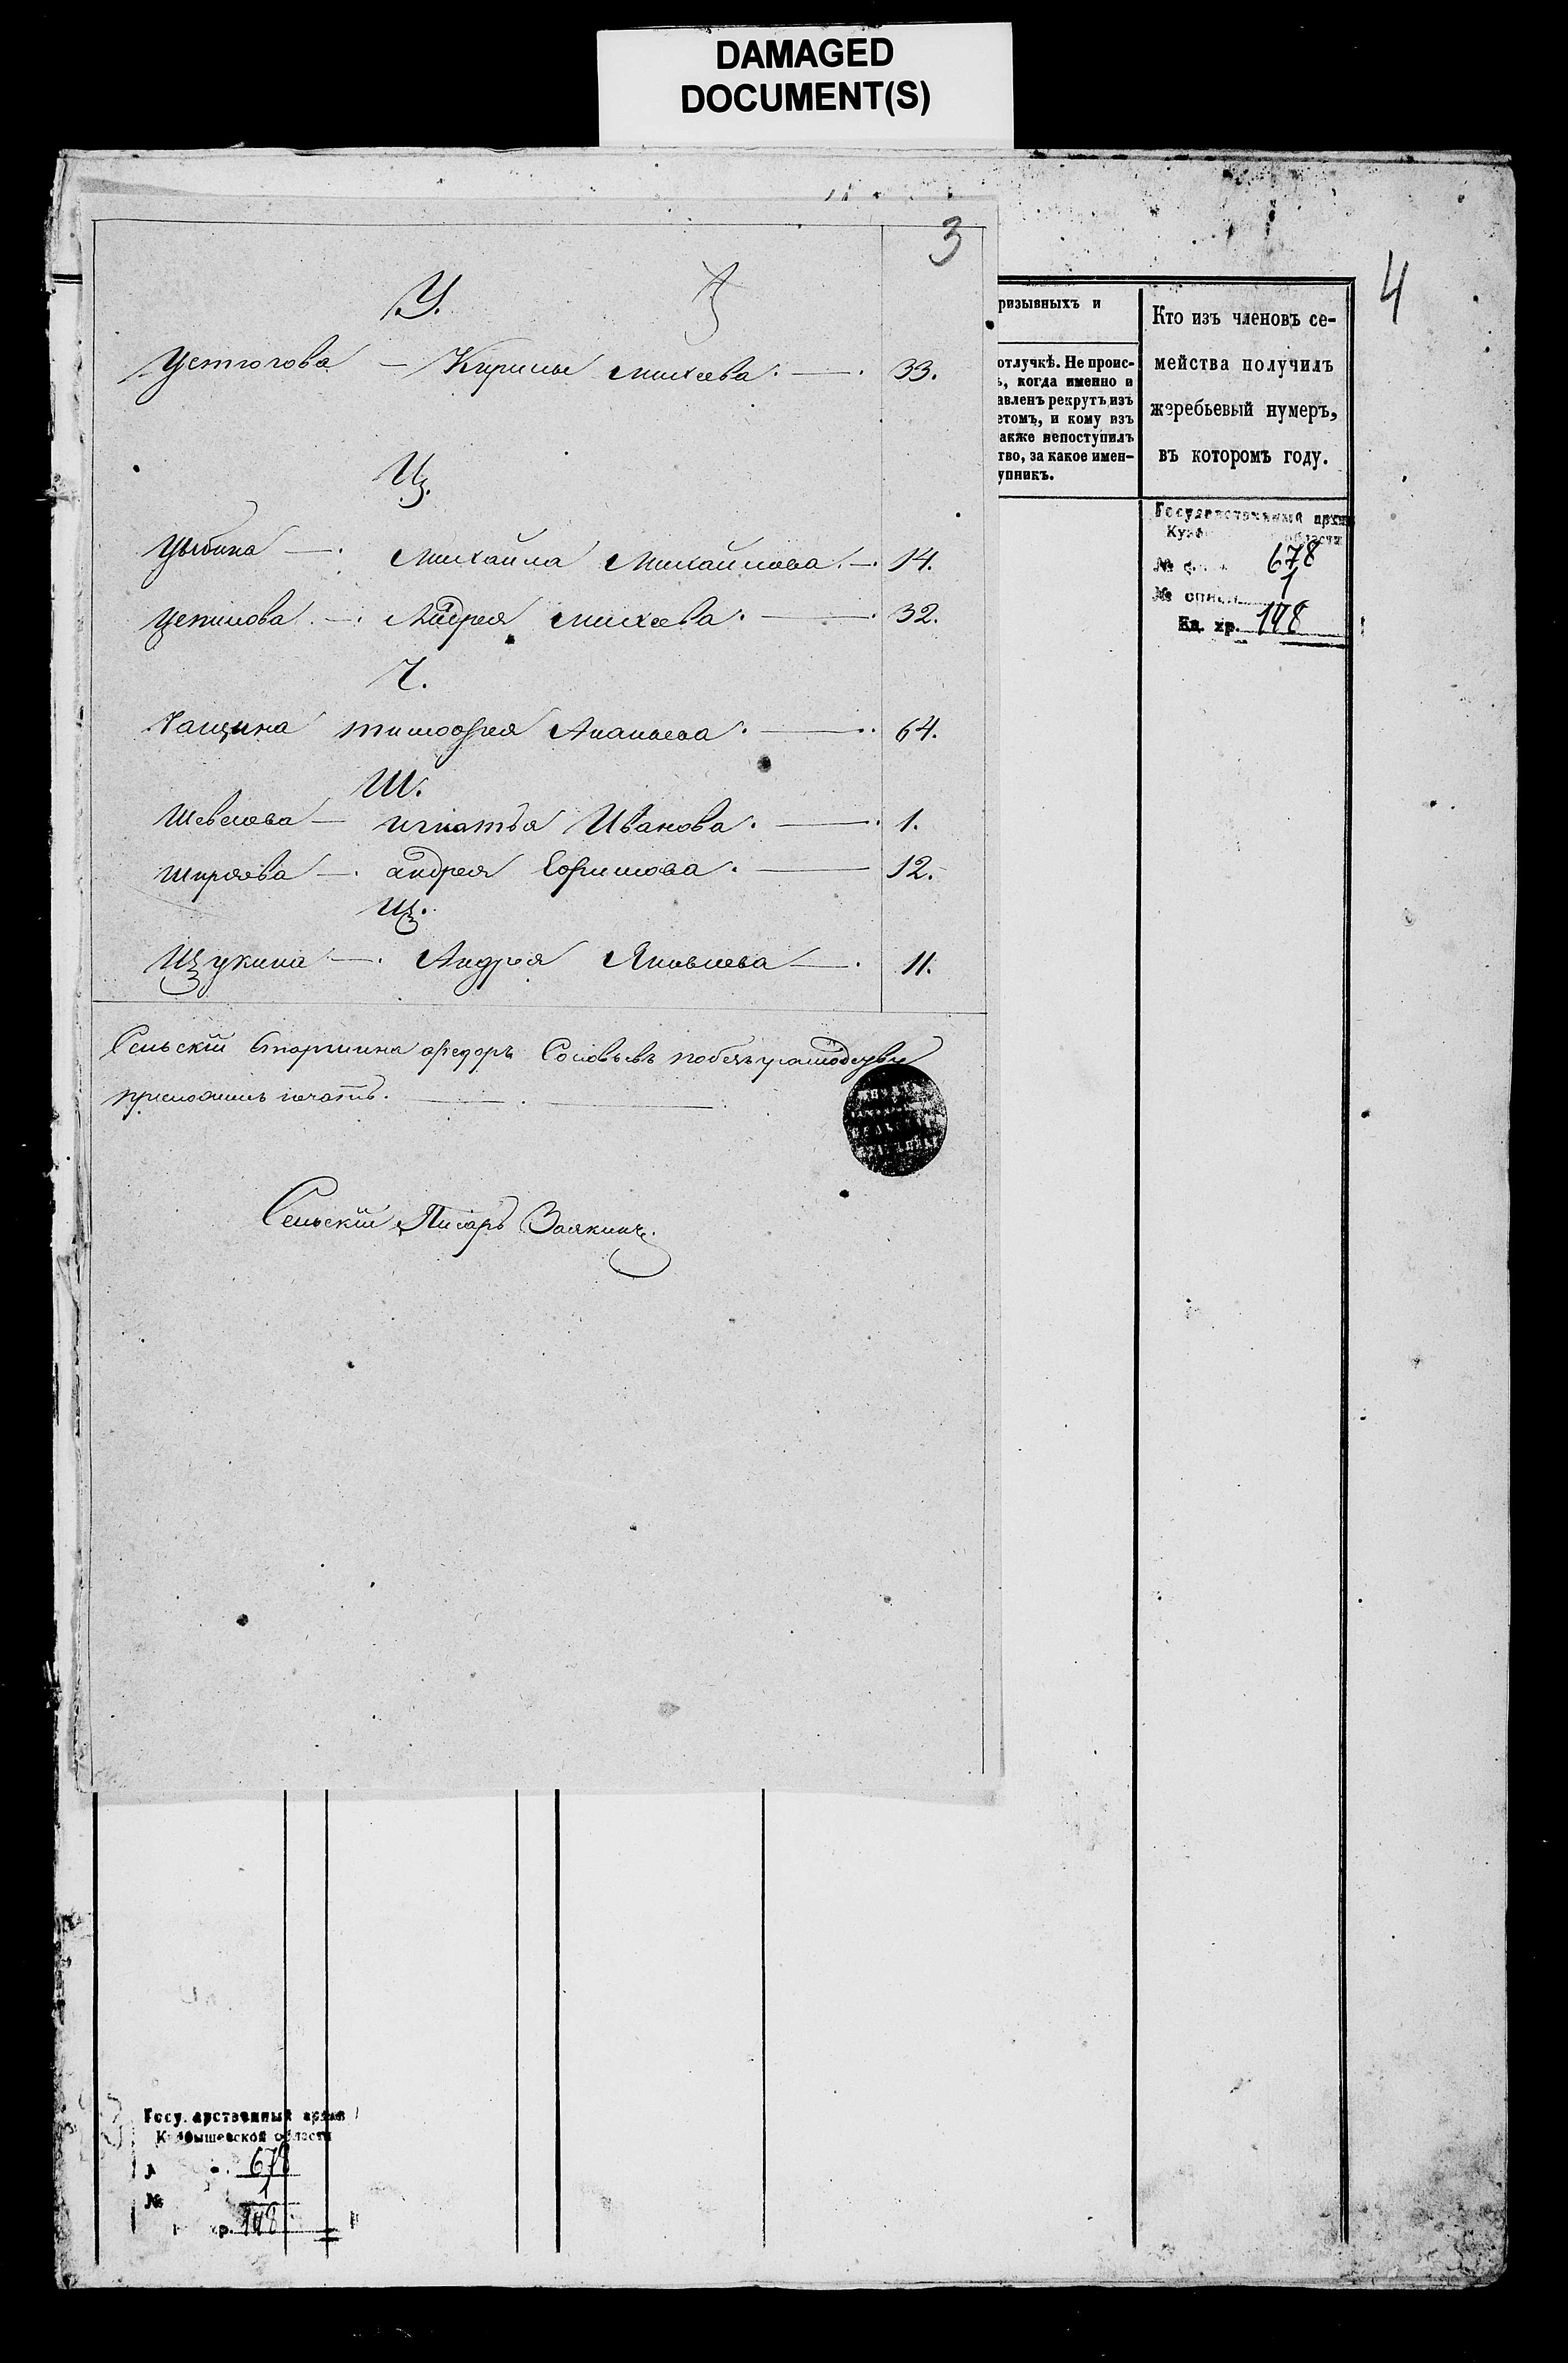 DAMAGED
DOCUMENT(S)
3
4
У.
Устюгова — Кирилы Михеева. — 33.
Ц.
Цыбина — Михайла Михайлова. — 14.
Цепилова. — Андрея Михеева. — 32.
Ч.
Чащина Тимофея Ананьева. — 64.
Ш.
Шевелева — Игнатья Иванова. — 1.
Ширяева — Андрея Ефимова. — 12.
Щ.
Щукина — Андрея Яковлева — 11.
Сельскій Старшина Федоръ Соловьевъ
приложилъ печать.
Сельскій Писарь Заякинъ.
ризывныхъ и
отлучкѣ. Не проис-
ь, когда именно и
авленъ рекрутъ изъ
етомъ, и кому изъ
акже непоступилъ
тво, за какое имен-
упникъ.
Кто изъ членовъ се-
мейства получилъ
жеребьевый нумеръ,
въ которомъ году.
Государственный архив
области
№ 678
№ опис. 1
Ед. хр. 148
Госу.арственный архив
К.йбышевской области
678
№ 1
хр. 148